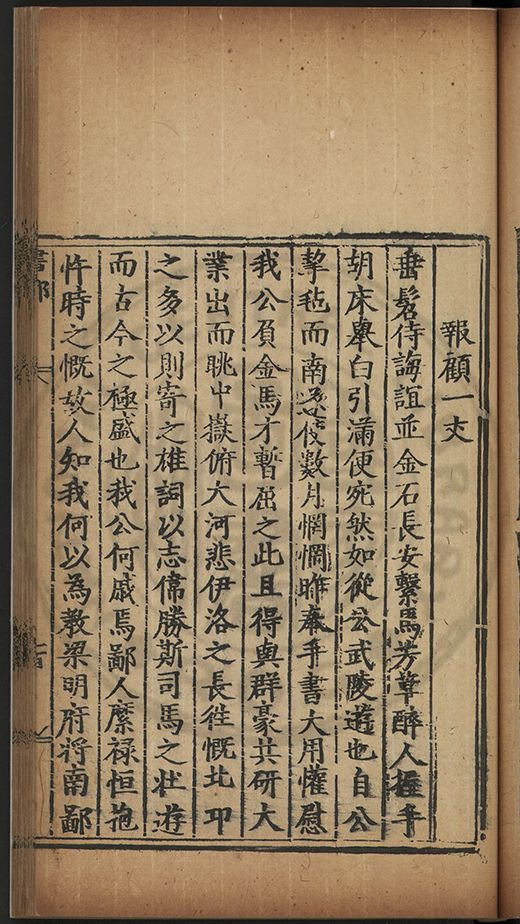 報顧一丈
垂髫侍誨誼並金石長安繫馬芳草醉人握手
胡床舉白引滿便宛然如從公武陵遊也自公
而南數月惘惘昨奉手書大用懽慰
我公負金馬才暫屈之此且得與群豪共研大
業出而眺中嶽俯大河悲伊洛之長徃慨北邙
之多以則寄之雄詞以志偉勝斯司馬之壯遊
而古今之極盛也我公何戚焉鄙人縻祿恒抱
忤時之慨故人知我何以為教梁明府將南鄙